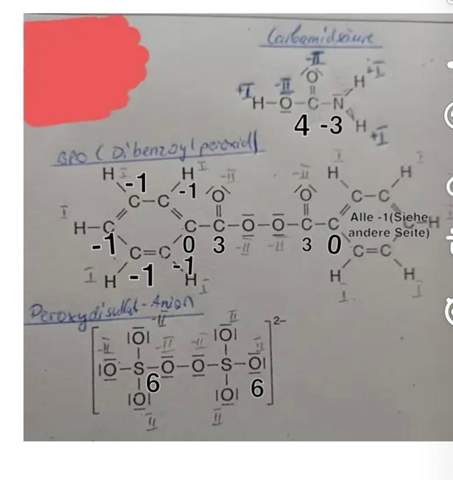 Carbamidsäure
-II
+I -II O H +I
H-O-C-N
4 -3 H +I
BPO (Dibenzoylperoxid)
H I H I -II -II H I H I
-1 -1 O O
I C-C C-C
H-C C-C-O-O-C-C Alle -1(Siehe H
-1 0 3 -II -II 3 0 andere Seite)
C=C -1 C=C
I H -1 H I H I H I
Peroxydisulfat-Anion
-II II 2-
-II |O| -II -II |O| II
|O-S-O-O-S-O|
6 6
|O| |O|
II II